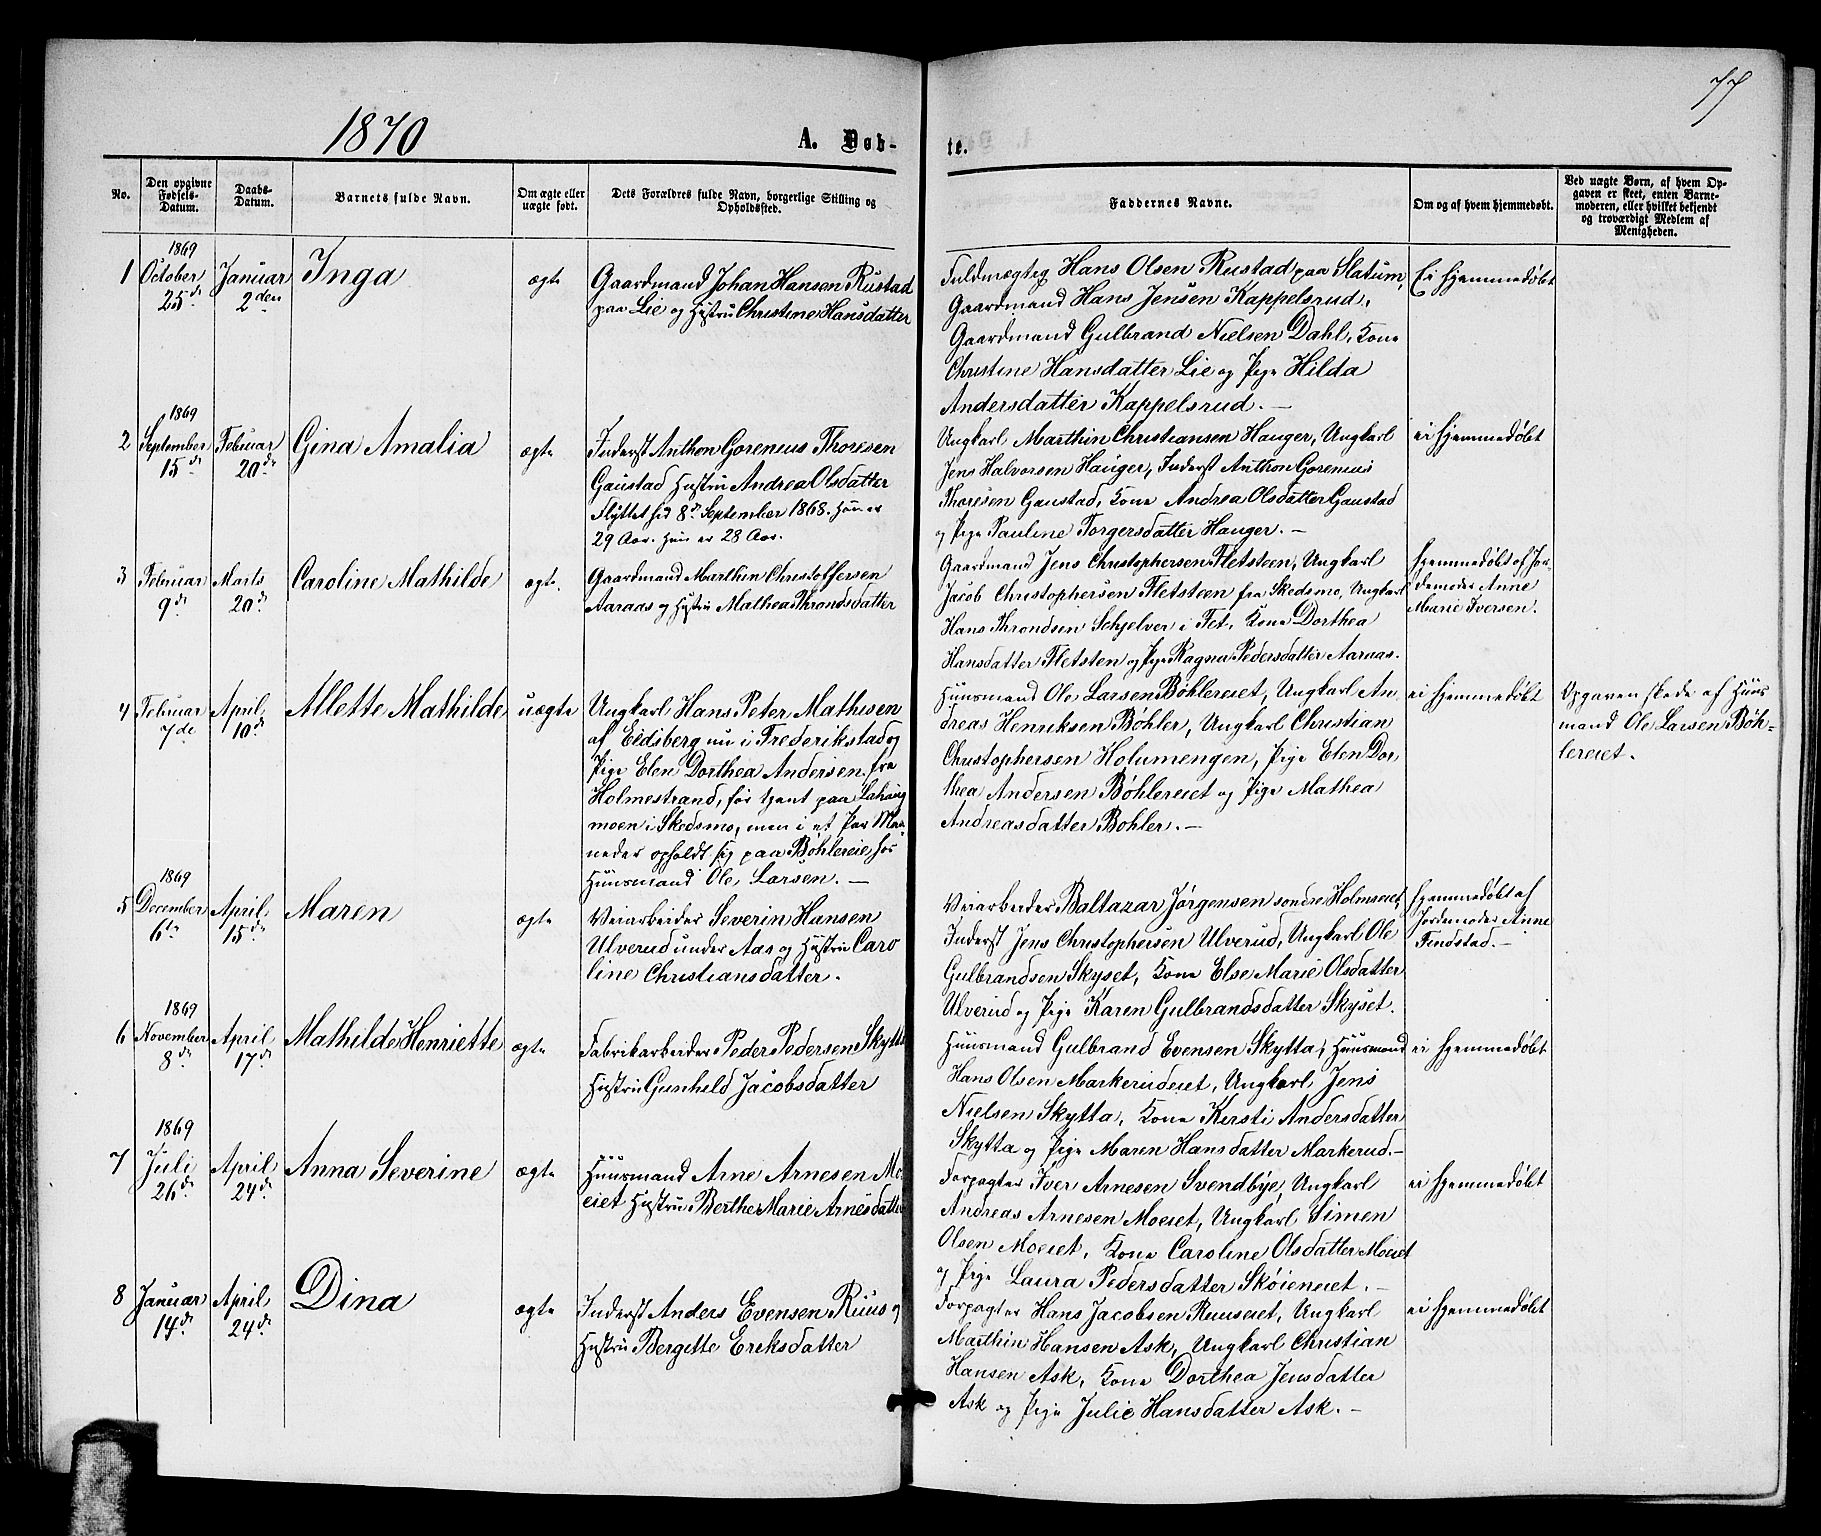 77
1870
A. Døb-
te.
No.
Den opgivne
Fødsels-
Datum.
Daabs-
Datum.
Barnets fulde Navn.
Om ægte eller
uægte født.
Dets Forældres fulde Navn, borgerlige Stilling og
Opholdssted.
Faddernes Navne.
Om og af hvem hjemmedøbt.
Ved uægte Børn, af hvem Op-
gaven er skeet, enten Barne-
moderen, eller hvilket bekjendt
og troværdigt Medlem af
Menigheden.
1
1869
October
25de
Januar
2den
Inga
ægte
Gaardmand Johan Hansen Rustad
paa Lie og Hustru Christine Hansdatter
Fuldmægtig Hans Olsen Rustad paa Slatum,
Gaardmand Hans Jensen Kappelsrud,
Gaardmand Gulbrand Nielsen Dahl, Kone
Christine Hansdatter Lie og Pige Hilda
Andersdatter Kappelsrud. —
Ei hjemmedøbt
2
1869
September
15de
Februar
20de
Gina Amalia
ægte
Inderst Anthon Gorenius Thoresen
Gaustad Hustru Andrea Olsdatter
Flyttet hid 8de September 1868. Han er
29 Aar. Hun er 28 Aar.
Ungkarl Marthin Christiansen Hauger, Ungkarl
Jens Halvorsen Hauger, Inderst Anthon Gorenius
Thoresen Gaustad, Kone Andrea Olsdatter Gaustad
og Pige Pauline Torgersdatter Hauger. —
ei hjemmedøbt
3
Februar
9de
Marts
20de
Caroline Mathilde
ægte.
Gaardmand Marthin Christoffersen
Aaraas og Hustru Mathea Throndsdatter
Gaardmand Jens Christophersen Fletsteen, Ungkarl
Jacob Christophersen Fletsteen fra Skedsmo, Ungkarl
Hans Throndsen Schjelver i Fet, Kone Dorthea
Hansdatter Fletsten og Pige Ragna Pedersdatter Aaraas.
hjemmedøbt af Jor-
demoder Anne
Marie Iversen.
4
Februar
7de
April
10de
Allette Mathilde
uægte
Ungkarl Hans Peter Mathisen
af Eidsberg nu i Frederikstad og
Pige Elen Dorthea Andersen fra
Holmestrand, før tjent paa Lahaug
moen i Skedsmo, men i et Par Maa-
neder opholdt sig paa Bøhlereie, hos
Huusmand Ole Larsen. —
Huusmand Ole Larsen Bøhlereiet, Ungkarl An
dreas Henriksen Bøhler, Ungkarl Christian
Christophersen Holumengen, Pige Elen Dor
thea Andersen Bøhlereiet og Pige Mathea
Andreasdatter Bohler. —
ei hjemmedøbt
Opgaven skede af Huus
mand Ole Larsen Bøh-
lereiet.
5
1869
December
6te
April
15de
Maren
ægte
Veiarbeider Severin Hansen
Ulverud under Aas og Hustru Caro
line Christiansdatter.
Veiarbeider Baltazar Jørgensen søndre Holmseiet,
Inderst Jens Christophersen Ulverud, Ungkarl Ole
Gulbrandsen Skyset, Kone Else Marie Olsdatter
Ulverud og Pige Karen Gulbrandsdatter Skyset.
hjemmedøbt af
Jordemoder Anne
Findstad. —
6
1869
November
8de
April
17de
Mathilde Henriette
ægte
Fabrikarbeider Peder Pedersen Skytta
Hustru Gunheld Jacobsdatter
Huusmand Gulbrand Evensen Skytta, Huusmand
Hans Olsen Markerudeiet, Ungkarl Jens
Nielsen Skytta, Kone Kersti Andersdatter
Skytta og Pige Maren Hansdatter Markerud. —
ei hjemmedøbt
7
1869
Juli
26de
April
24de
Anna Severine
ægte
Huusmand Arne Arnesen Mo-
eiet Hustru Berthe Marie Arnesdatter
Forpagter Iver Arnesen Svendbye, Ungkarl
Andreas Arnesen Moeiet, Ungkarl Simen
Olsen Moeiet, Kone Caroline Olsdatter Moeiet
og Pige Laura Pedersdatter Skøieneiet. —
ei hjemmedøbt
8
Januar
14de
April
24de
Dina
ægte
Inderst Anders Evensen Ruus og
Hustru Bergitte Eriksdatter
Forpagter Hans Jacobsen Ruuseiet, Ungkarl
Marthin Hansen Ask, Ungkarl Christian
Hansen Ask, Kone Dorthea Jensdatter
Ask og Pige Julie Hansdatter Ask. —
ei hjemmedøbt